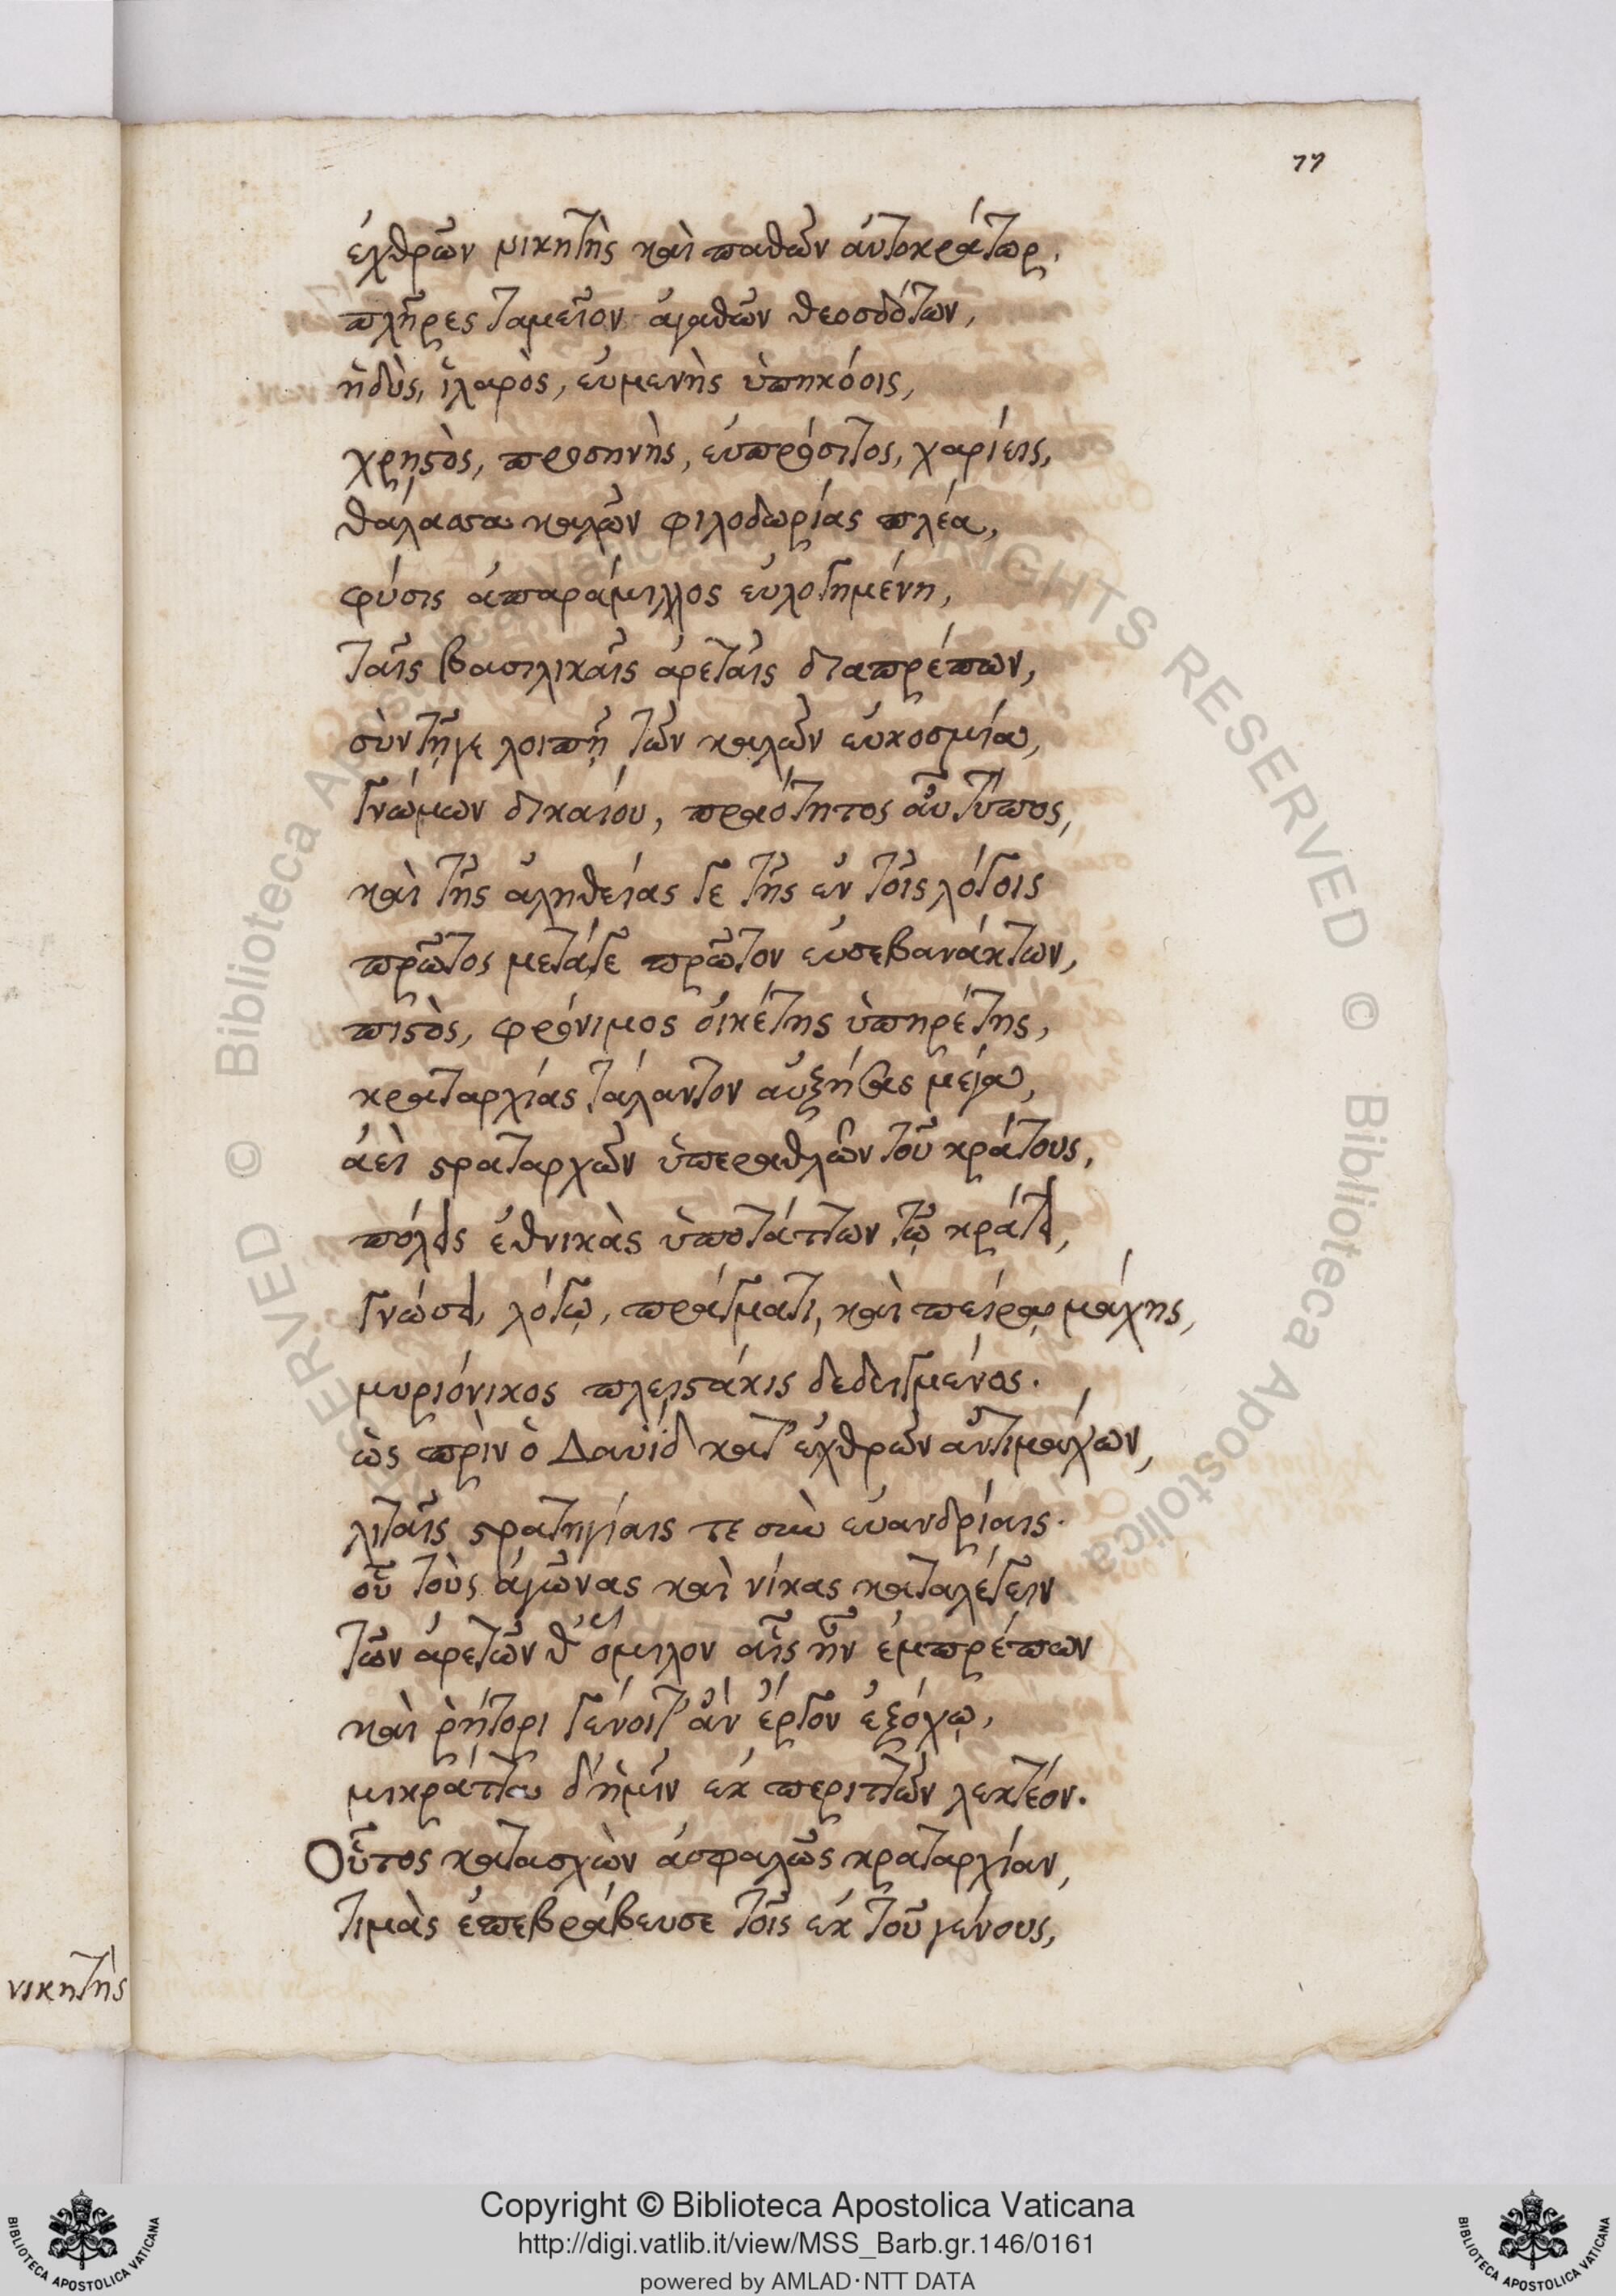 77
ἐχθρῶν νικητὴς καὶ παθῶν αὐτοκράτωρ.
πλῆρες ταμεῖον ἀγαθῶν θεοσδότων,
ἡδὺς, ἱλαρὸς, εὐμενὴς ὑπηκόοις,
χρηστὸς, προσηνὴς, εὐπρόσιτος, χαρίεις,
θάλασσα καλῶν φιλοδωρίας πλέα,
φύσις ἀπαράμιλλος εὐλογημένη,
ταῖς βασιλικαῖς ἀρεταῖς διαπρέπων,
σὺν τῇγε λοιπῇ τῶν καλῶν εὐκοσμία,
γνώμων δικαίου, πραότητος αὖ τύπος,
καὶ τῆς ἀληθείας γε τῆς ἐν τοῖς λόγοις
πρῶτος μετάγε πρῶτον εὐσεβανάκτων,
πιστὸς, φρόνιμος οἰκέτης ὑπηρέτης,
κραταρχίας τάλαντον αὐξήσας μέγα,
ἀεὶ στραταρχῶν ὑπεραθλῶν τοῦ κράτους,
πόλεις ἐθνικὰς ὑποτάττων τῷ κράτει,
γνώσει, λόγῳ, πράγματι, καὶ πείρᾳ μάχης,
μυριόνικος πλειστάκις δεδειγμένος.
ὡς πρὶν ὁ Δαυὶδ κατ' ἐχθρῶν ἀντιμάχων,
λιταῖς στρατηγίαις τε σὺν εὐανδρίαις.
οὗ τοὺς ἀγῶνας καὶ νίκας καταλέγειν
τῶν ἀρετῶν θ' ὅμιλον αἷς ἦν ἐμπρέπων
καὶ ῥήτορι γένοιτ' ἂν ἔργον ἐξόχῳ,
μικράττα δ' ἡμῖν ἐκ περιττῶν λεκτέον.
Οὗτος κατασχὼν ἀσφαλῶς κραταρχίαν,
τιμὰς ἐπεβράβευσε τοῖς ἐκ τοῦ γένους,
νικητὴς
Copyright © Biblioteca Apostolica Vaticana
http://digi.vatlib.it/view/MSS_Barb.gr.146/0161
powered by AMLAD·NTT DATA
BIBLIOTECA APOSTOLICA VATICANA
BIBLIOTECA APOSTOLICA VATICANA